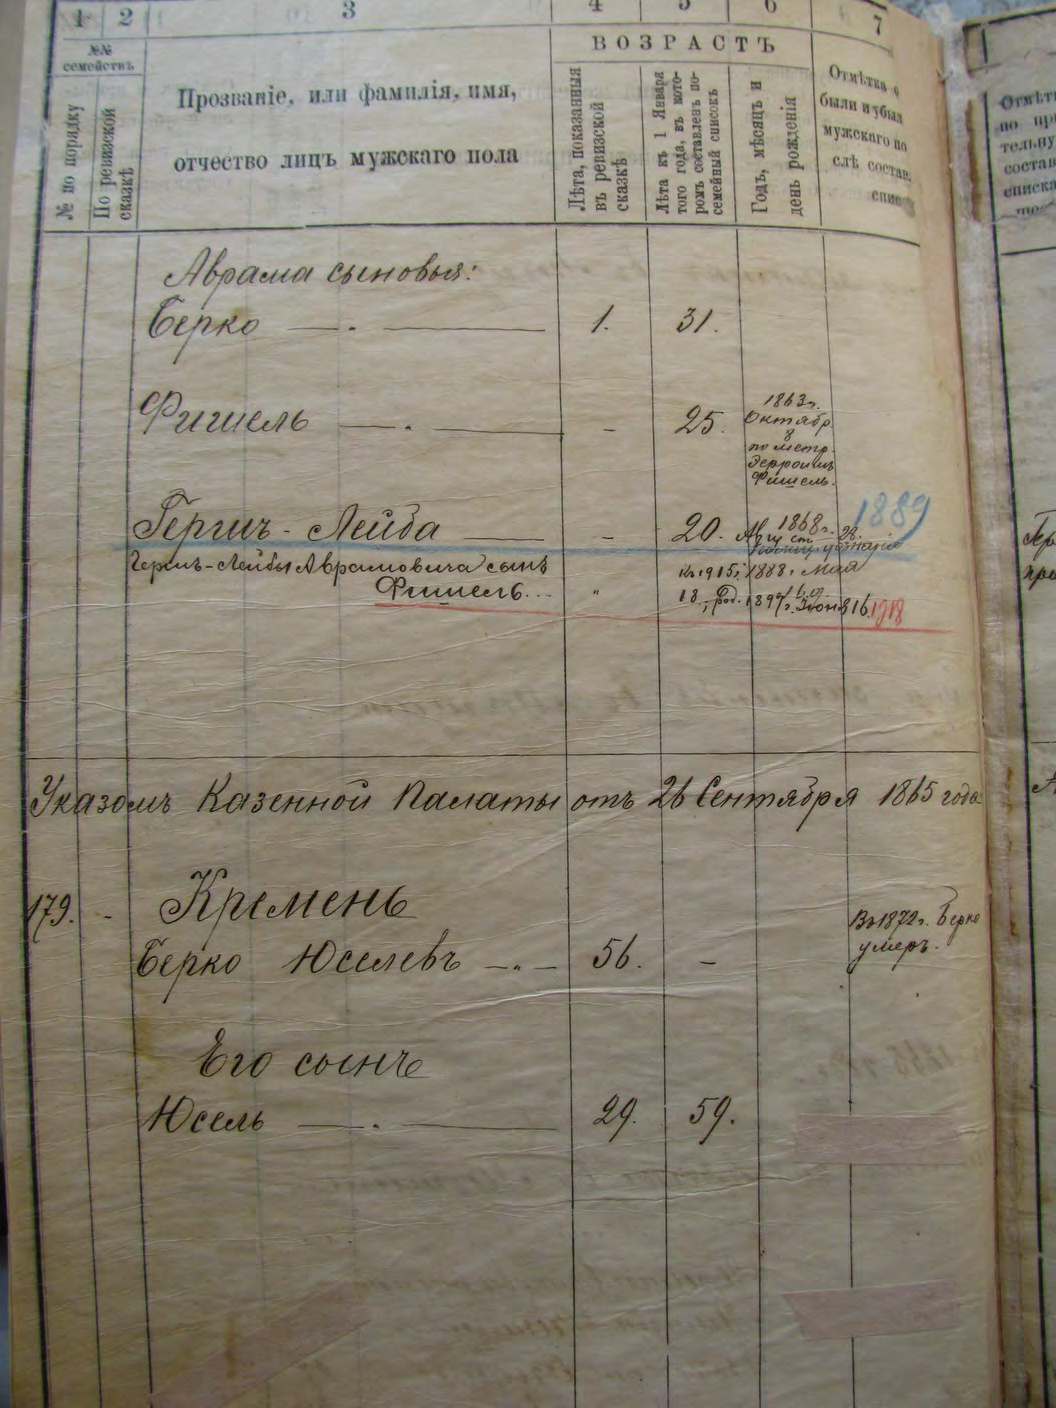 1 2 3 4 5 6 7
№№ семействъ
№ по порядку
По ревизской сказкѣ
Прозваніе, или фамилія, имя,
отчество лицъ мужскаго пола
ВОЗРАСТЪ
Лѣта, показанныя
въ ревизской
сказкѣ
Лѣта къ 1 Января
того года, въ кото-
ромъ составленъ по-
семейный списокъ
Годъ, мѣсяцъ и
день рожденія
Отмѣтка о
были и убыл
мужскаго по
слѣ состав.
спис
Аврама сыновья:
Берко — . — 1. 31.
Фишель — . — - 25. 1863 г.
Октябр.
8
по метр.
Фишель.
Гершъ - Лейба — - 20. 1868 г. 1889
Август. 28.
Гершъ-Лейбы Аврамовича сынъ къ 1915 г. 1888 г. мая
Фишель... " 18, род. 1897 г. Іюня 16. 1918
Указомъ Казенной Палаты отъ 26 Сентября 1865 года
179. - Кремень
Берко Юселевъ — . — 56. - Въ 1872 г. Берко
умеръ.
Его сынъ
Юсель — . — 29. 59.
Отмѣтк
по пр
тельну
состав
списка